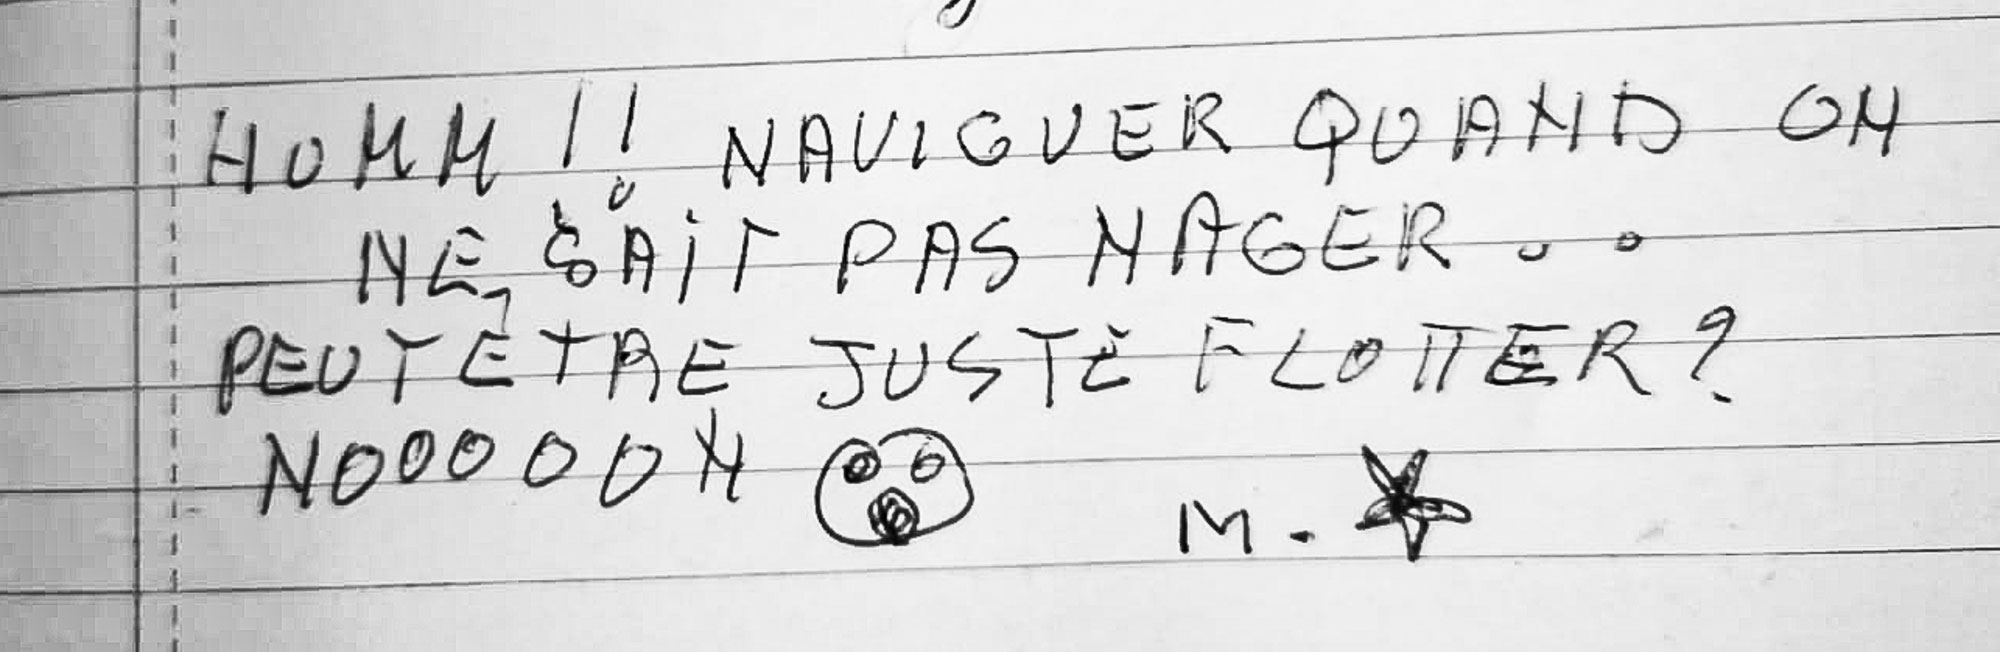 HUMM !! NAVIGUER QUAND ON
NE SAIT PAS NAGER..
PEUT ETRE JUSTE FLOTTER?
NOOOOON
M.